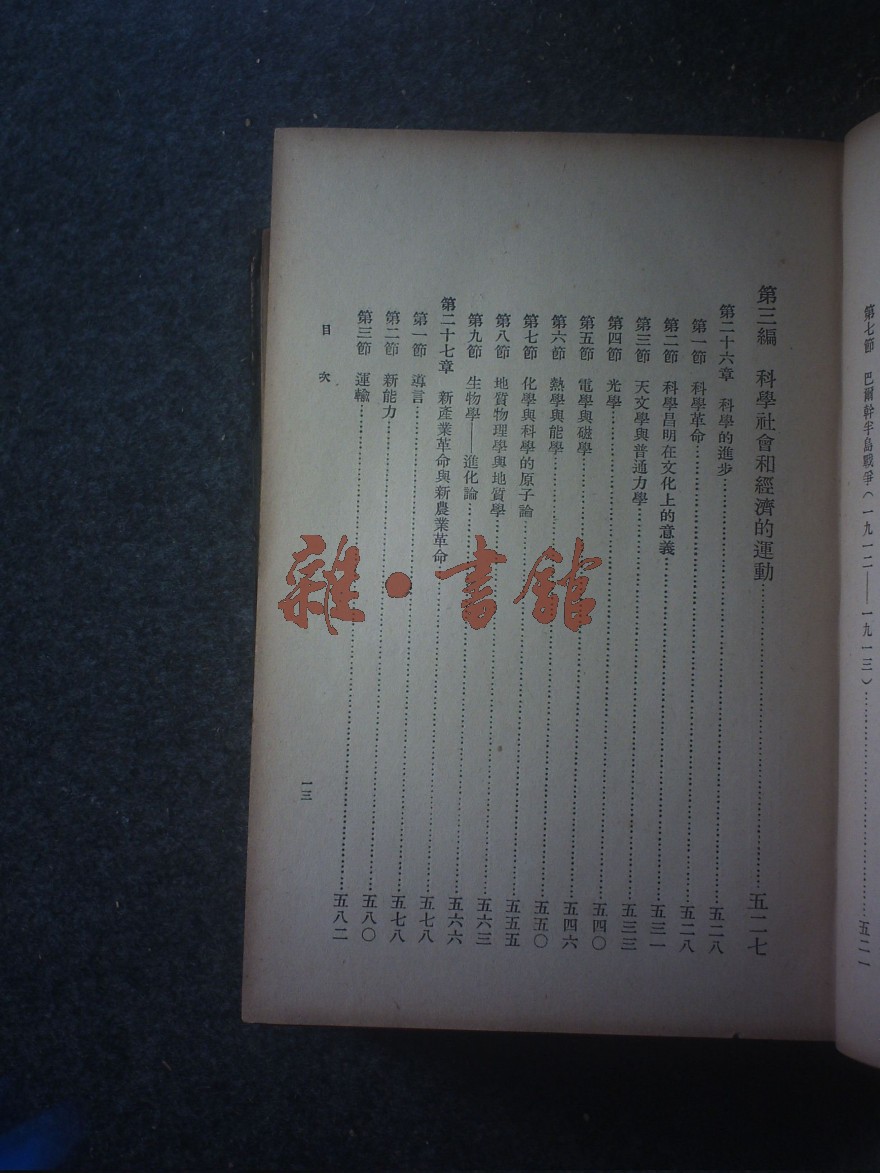 第七節 巴爾幹半島戰爭(一九一二——一九一三)……五二一
第三編 科學社會和經濟的運動……五二七
第二十六章 科學的進步……五二八
第一節 科學革命……五二八
第二節 科學昌明在文化上的意義……五三一
第三節 天文學與普通力學……五三三
第四節 光學……五四〇
第五節 電學與磁學……五四六
第六節 熱學與能學……五五〇
第七節 化學與科學的原子論……五五五
第八節 地質物理學與地質學……五六三
第九節 生物學——進化論……五六六
第二十七章 新產業革命與新農業革命……五七八
第一節 導言……五七八
第二節 新能力……五八〇
第三節 運輸……五八二
目次
一三
雜·書館